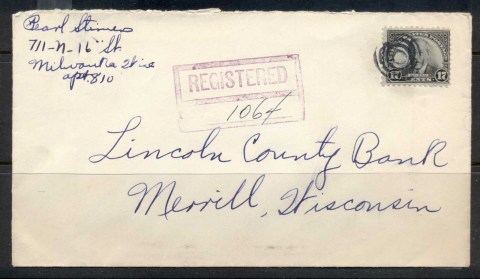 Pearl Stimers
711-N-16 St.
Milwauke Wise
apt. 810
REGISTERED
1064
17 CENTS 17
Lincoln County Bank
Merrill, Wisconsin